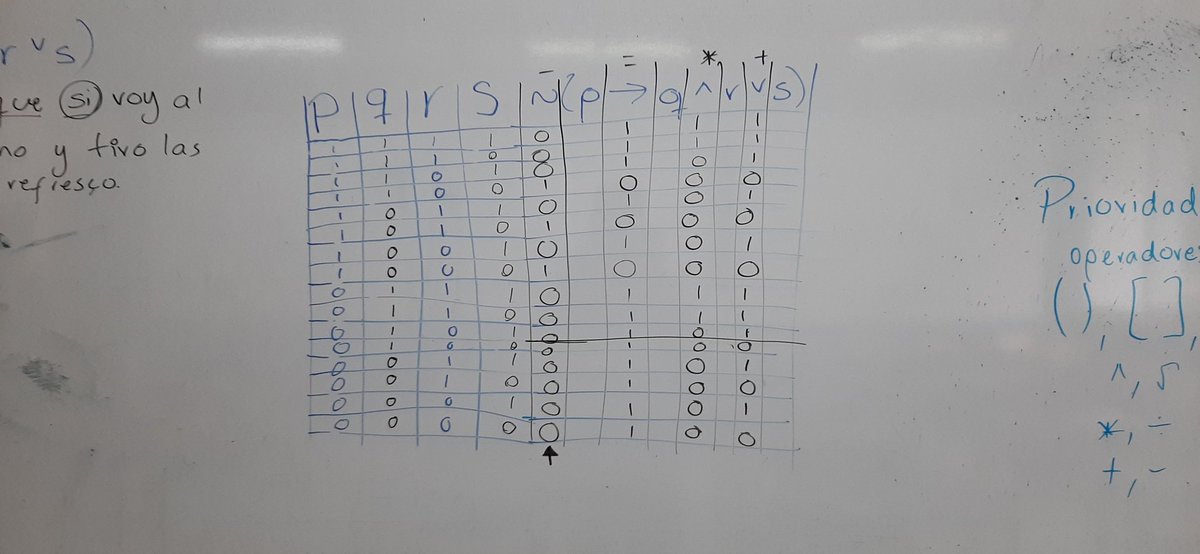 r ∨ s)
que si voy al
no y tivo las
refresco.
- = * +
p q r s ~ (p → q ∧ r ∨ s)
1 1 1 1 0 1 1 1
1 1 1 0 0 1 1 1
1 1 0 1 0 1 0 1
1 1 0 0 1 0 0 0
1 0 1 1 0 1 0 1
1 0 1 0 1 0 0 0
1 0 0 1 0 1 0 1
1 0 0 0 1 0 0 0
0 1 1 1 0 1 1 1
0 1 1 0 0 1 1 1
0 1 0 1 0 1 0 1
0 1 0 0 0 1 0 0
0 0 1 1 0 1 0 1
0 0 1 0 0 1 0 0
0 0 0 1 0 1 0 1
0 0 0 0 0 1 0 0
Prioridad
operadores
( ), [ ],
^, √
*, ÷
+, -